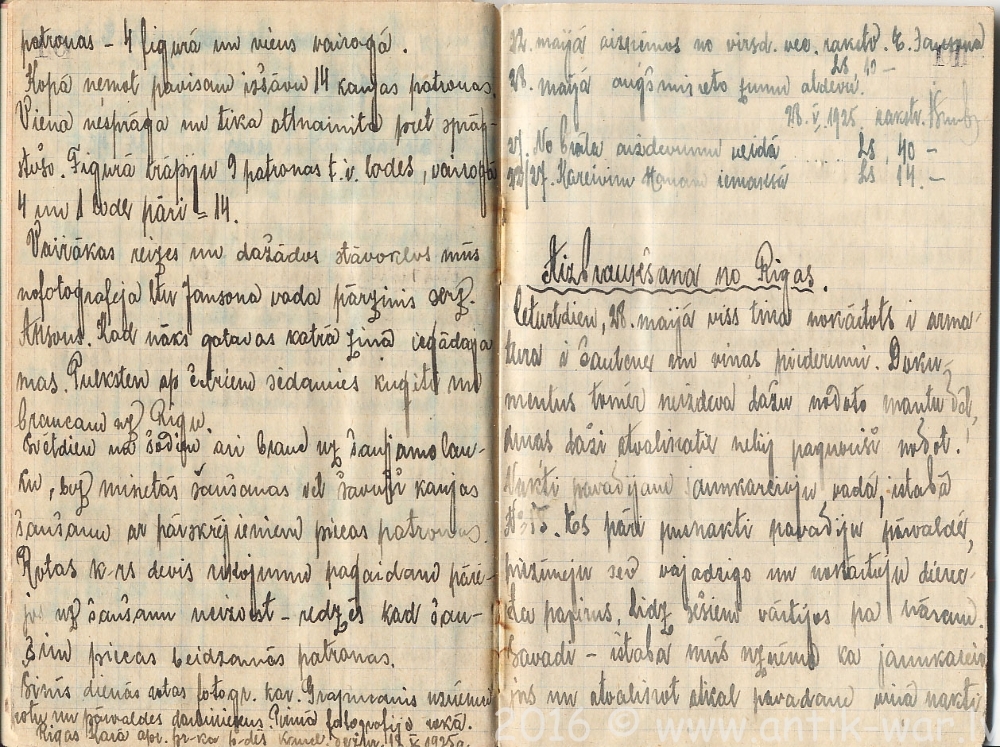 patronas – 4 figurā un viens vairogā.
Kopā ņemot pavisam izšāvu 14 kaujas patronas.
Viena nesprāga un tika atmainīta pret sprāg-
stošo. Figurā trāpīju 9 patronas t.i. lodes, vairogā
4 un 1 lode pāri = 14.
Vairākas reizes un dažādos stāvokļos mūs
nofotografēja Jansona vada pārzinis serž.
Ansons. Kad nāks gatavas katrā ziņā iegādaja
mas. Pulksten ap četriem sēdamies kuģītī un
braucam uz Rīgu.
Svētdien un šodien arī brauc uz šaujamo lau-
ku, bez minētās šaušanas vēl šavuši kaujas
šaušanu ar pārskrējieniem piecas patronas.
Rotas k-rs devis rīkojumu pagaidam pārē-
jos uz šaušanu neizvest – redzēs kad šau-
sim piecas beidzamās patronas.
Šinīs dienās rotas fotogr. kar. uzņēma
rotu un pārvaldes darbiniekus. Pirmā fotografijā rokā.
Rīgas
22. maijā aizņēmos no virsd. vec. rakstv. E.
Ls, 10 –
28. maijā augšminēto sumu atdevu.
28. V. 1925. rakstv.
27. No brāļa aizdevumu veidā ..... Ls, 40 –
27. Kareivim iemaksā Ls 14. –
Aizbraukšana no Rīgas.
Ceturtdien, 28. maijā viss tiek nokārtots i arma-
tura i šautene un viņas piederumi. Doku-
mentus tomēr neizdeva dažu nodoto mantu dēļ,
kuras daži atvaļinatie nebij paguvuši nodot.
Nakti pavadijam jaunkareivju vadā, istabā
№ 55. Es pāri pusnakti pavadiju pārvaldē,
pierakstīju sev vajadzigo un nokārtoju
papirus. Līdz sešiem vārtijos pa nāram.
Savadi – istabā mūs uzņēma kā jaunkareiv-
jus un atvaļinot atkal pavadam viņā nakti
2016 © www.antik-war.lv